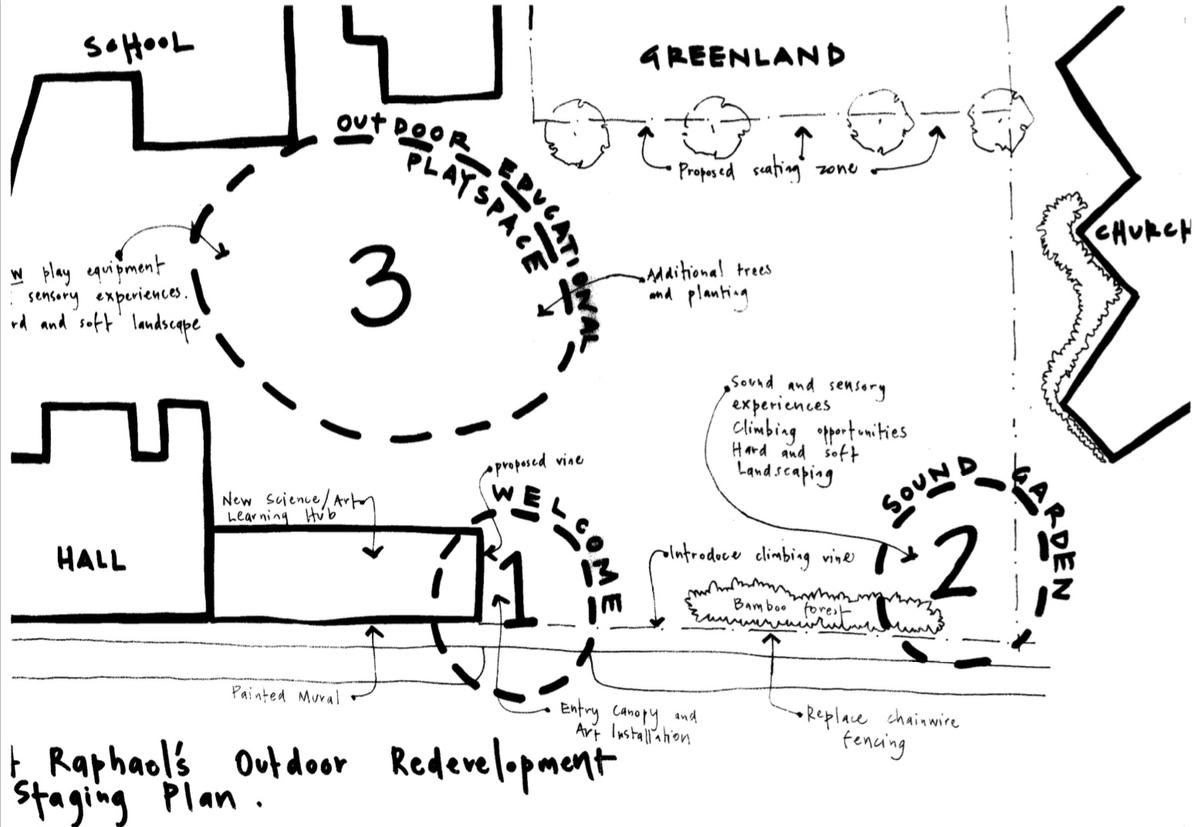 SCHOOL
GREENLAND
OUTDOOR EDUCATIONAL
PLAYSPACE
Proposed seating zone
CHURCH
3
w play equipment
sensory experiences.
rd and soft landscape
Additional trees
and planting
Sound and sensory
experiences
Climbing opportunities
Hard and soft
Landscaping
proposed vine
WELCOME
SOUND GARDEN
New Science/Art
Learning Hub
HALL
1
Introduce climbing vine
2
Bamboo forest
Painted Mural
Entry Canopy and
Art Installation
Replace chainwire
fencing
t Raphael's Outdoor Redevelopment
Staging Plan.